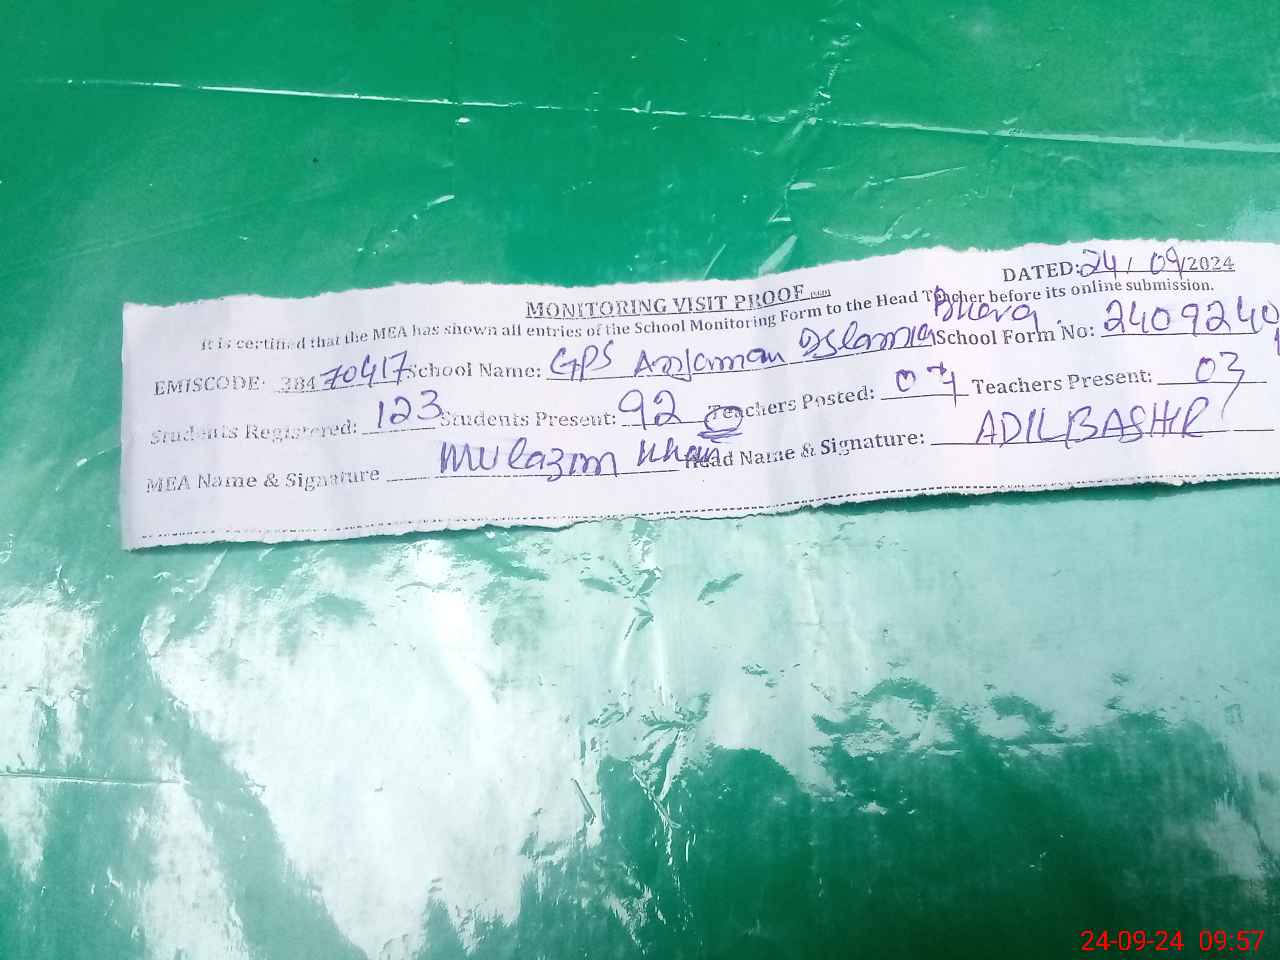 DATED: 24/09/2024
MONITORING VISIT PROOF
It is certified that the MEA has shown all entries of the School Monitoring Form to the Head Teacher before its online submission.
EMISCODE: 38470417 School Name: GPS Anjaman Islamia Bhera School Form No: 2409240
Students Registered: 123 Students Present: 92 Teachers Posted: 04 Teachers Present: 03
MEA Name & Signature Mulazim Khan Head Name & Signature: ADIL BASHIR
24-09-24 09:57